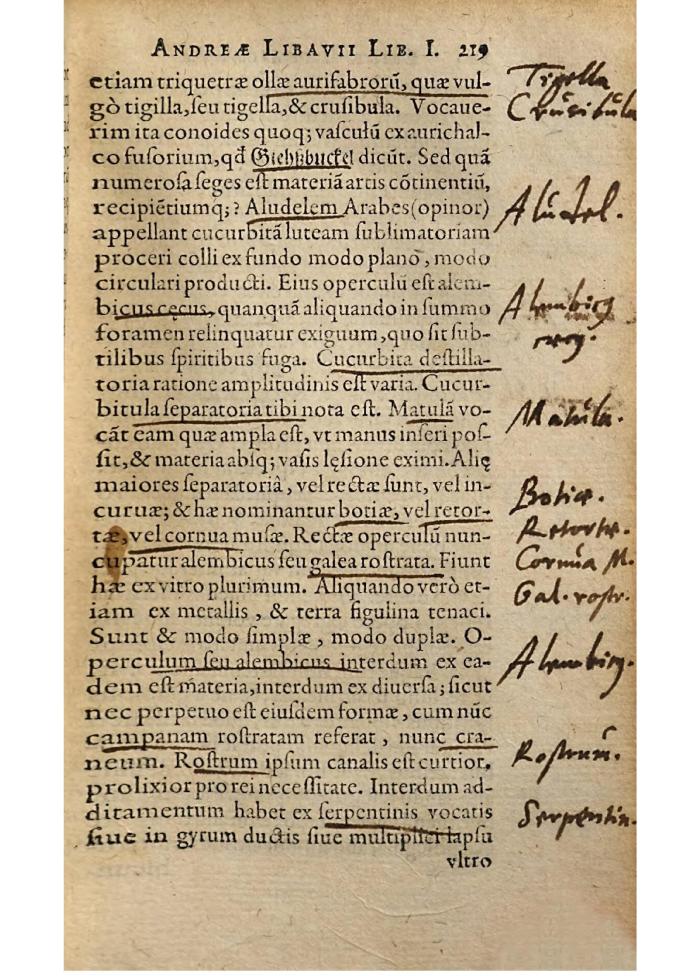 ANDREÆ LIBAVII LIB. I. 219
etiam triquetræ ollæ aurifabrorũ, quæ vul-
gò tigilla, seu tigella, & crusibula. Vocaue-
rim ita conoides quoq; vasculũ ex aurichal-
co fusorium, qđ Giehßbuckel dicũt. Sed quã
numerosa seges est materiã artis cõtinentiũ,
recipiẽtiumq;? Aludelem Arabes (opinor)
appellant cucurbitã luteam sublimatoriam
proceri colli ex fundo modo plano, modo
circulari producti. Eius operculũ est alem-
bicus cęcus, quanquã aliquando in summo
foramen relinquatur exiguum, quo sit sub-
tilibus spiritibus fuga. Cucurbita destilla-
toria ratione amplitudinis est varia. Cucur-
bitula separatoria tibi nota est. Matulã vo-
cãt eam quæ ampla est, vt manus inseri pos-
sit, & materia absq; vasis lęsione eximi. Alię
maiores separatoriâ, vel rectæ sunt, vel in-
curuæ; & hæ nominantur botiæ, vel retor-
tæ, vel cornua musæ. Rectæ operculũ nun-
cupatur alembicus seu galea rostrata. Fiunt
hæ ex vitro plurimum. Aliquando verò et-
iam ex metallis, & terra figulina tenaci.
Sunt & modo simplæ, modo duplæ. O-
perculum seu alembicus interdum ex ea-
dem est materia, interdum ex diuersa; sicut
nec perpetuo est eiusdem formæ, cum nũc
campanam rostratam referat, nunc cra-
neum. Rostrum ipsum canalis est curtior,
prolixior pro rei necessitate. Interdum ad-
ditamentum habet ex serpentinis vocatis
siue in gyrum ductis siue multiplici lapsu
vltro
Tigella
Crucibula
Aludel.
Alembicg
Matula.
Botiæ.
Retortæ.
Cornua M.
Gal. rostr.
Alembicg.
Rostrum.
Serpentin.